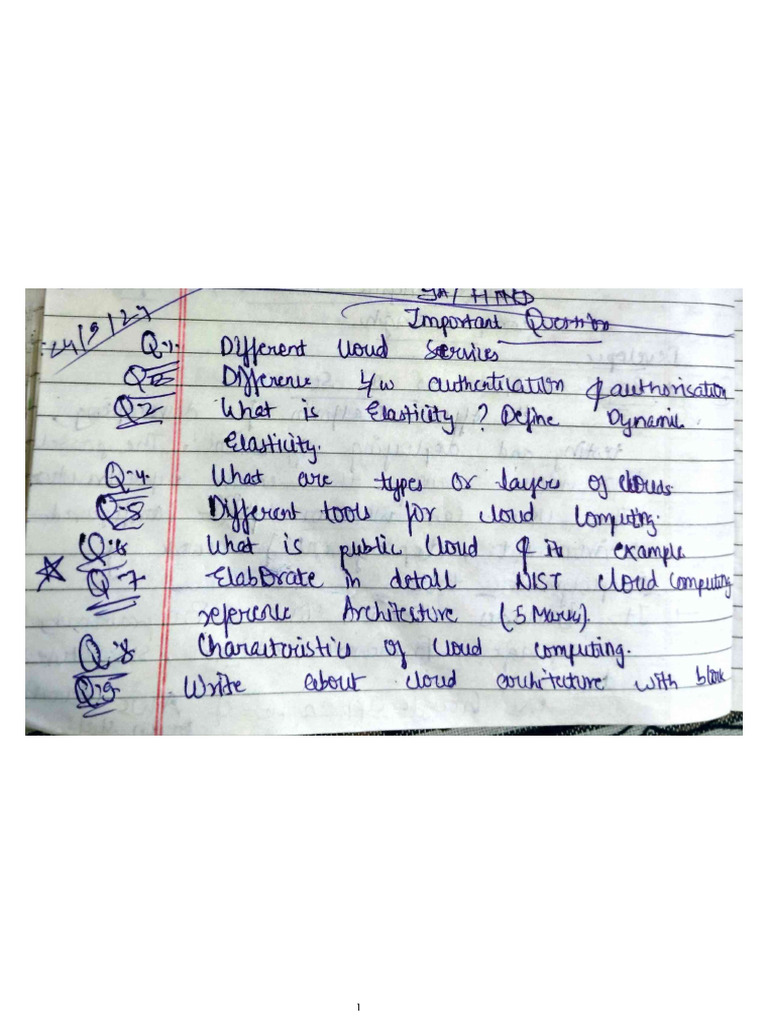 Important Question
Q.1. Different cloud Services
Difference b/w authentication & authorisation
Q.2 What is Elasticity? Define Dynamic
Elasticity.
Q.4 What are types or layers of clouds
Q.5 Different tools for cloud computing.
Q.6 What is public cloud & its example
Q.7 Elaborate in detail NIST cloud computing
reference Architecture (5 Marks).
Q.8 Characteristics of cloud computing.
Q.9. Write about cloud architecture with
1